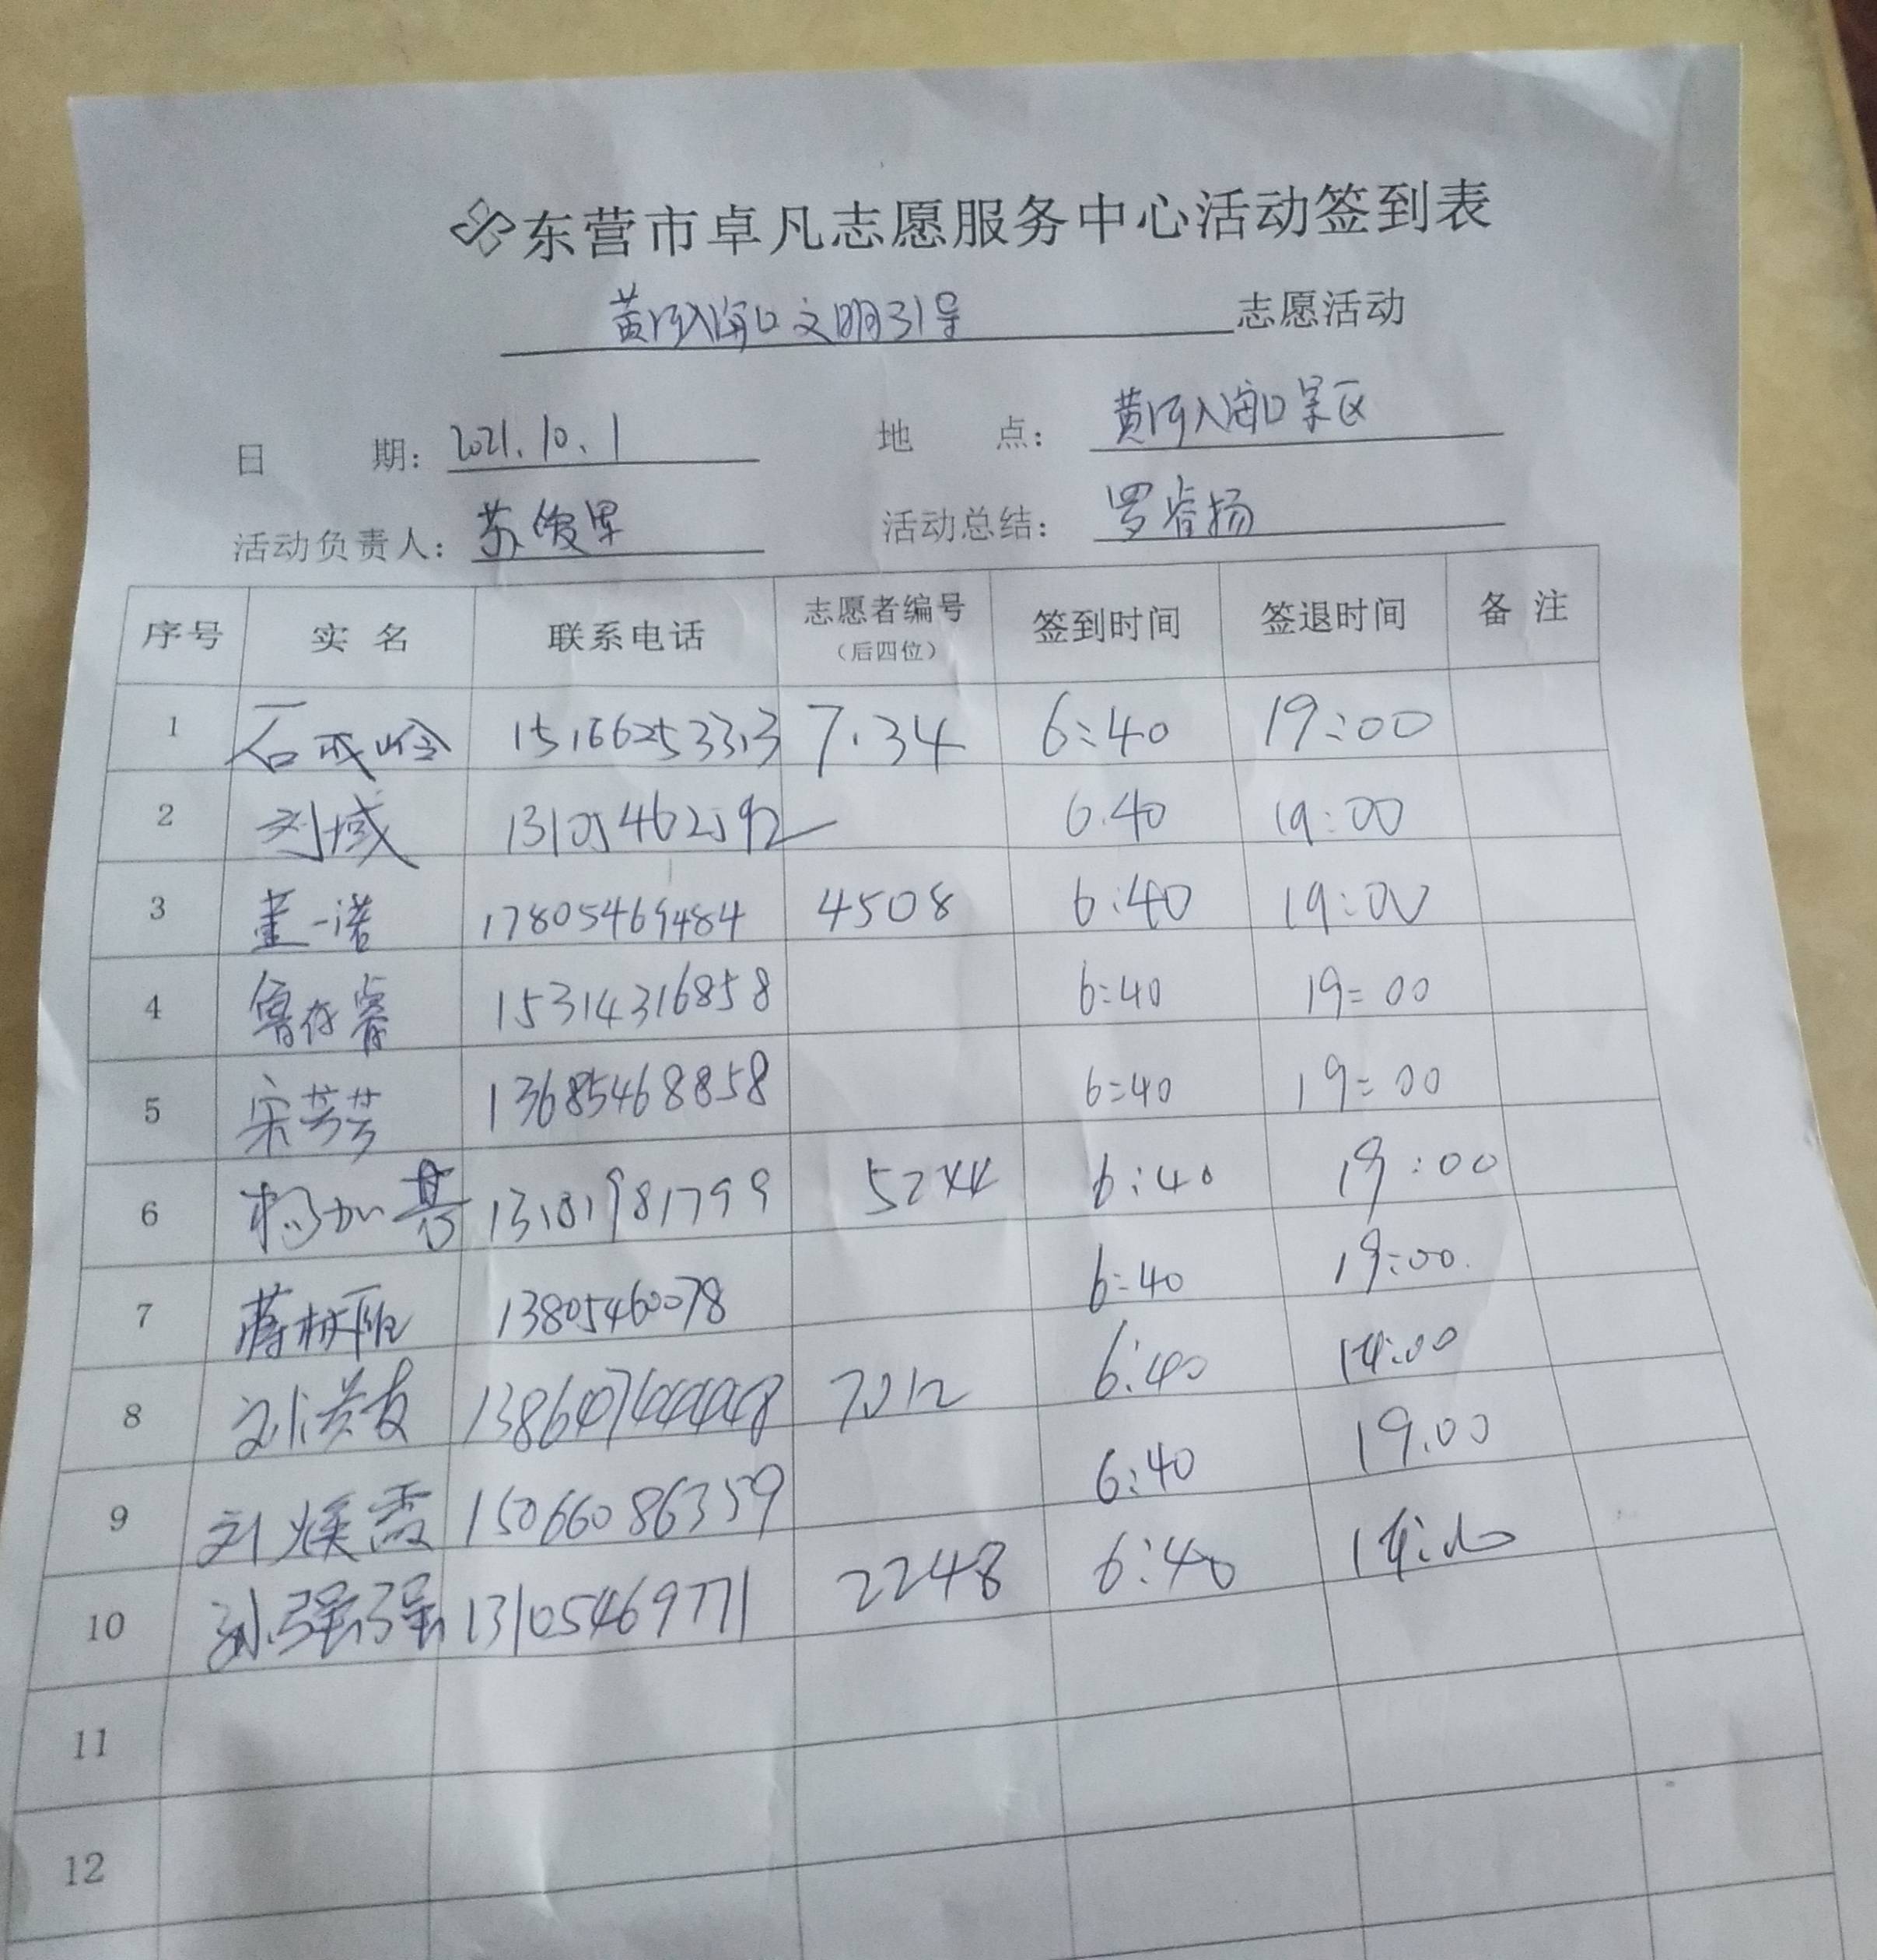 东营市卓凡志愿服务中心活动签到表
黄河入海口文明引导 志愿活动
日 期: 2021.10.1 地 点: 黄河入海口景区
活动负责人: 苏俊 活动总结: 罗睿扬
序号 实 名 联系电话 志愿者编号 (后四位) 签到时间 签退时间 备 注
1 石成 7.34 6:40 19:00
2 刘域 13105462592 6.40 19:00
3 董一诺 17805469484 4508 6:40 19:00
4 鲁存睿 15314316858 6:40 19:00
5 宋芳芳 13685468858 6:40 19:00
6 杨加 13181981799 5244 6:40 19:00
7 蒋 13805460078 6:40 19:00
8 刘洪友 7012 6:40 19:00
9 刘焕霞 15066086359 6:40 19.00
10 孙强强 13105469771 2248 6:40
11
12